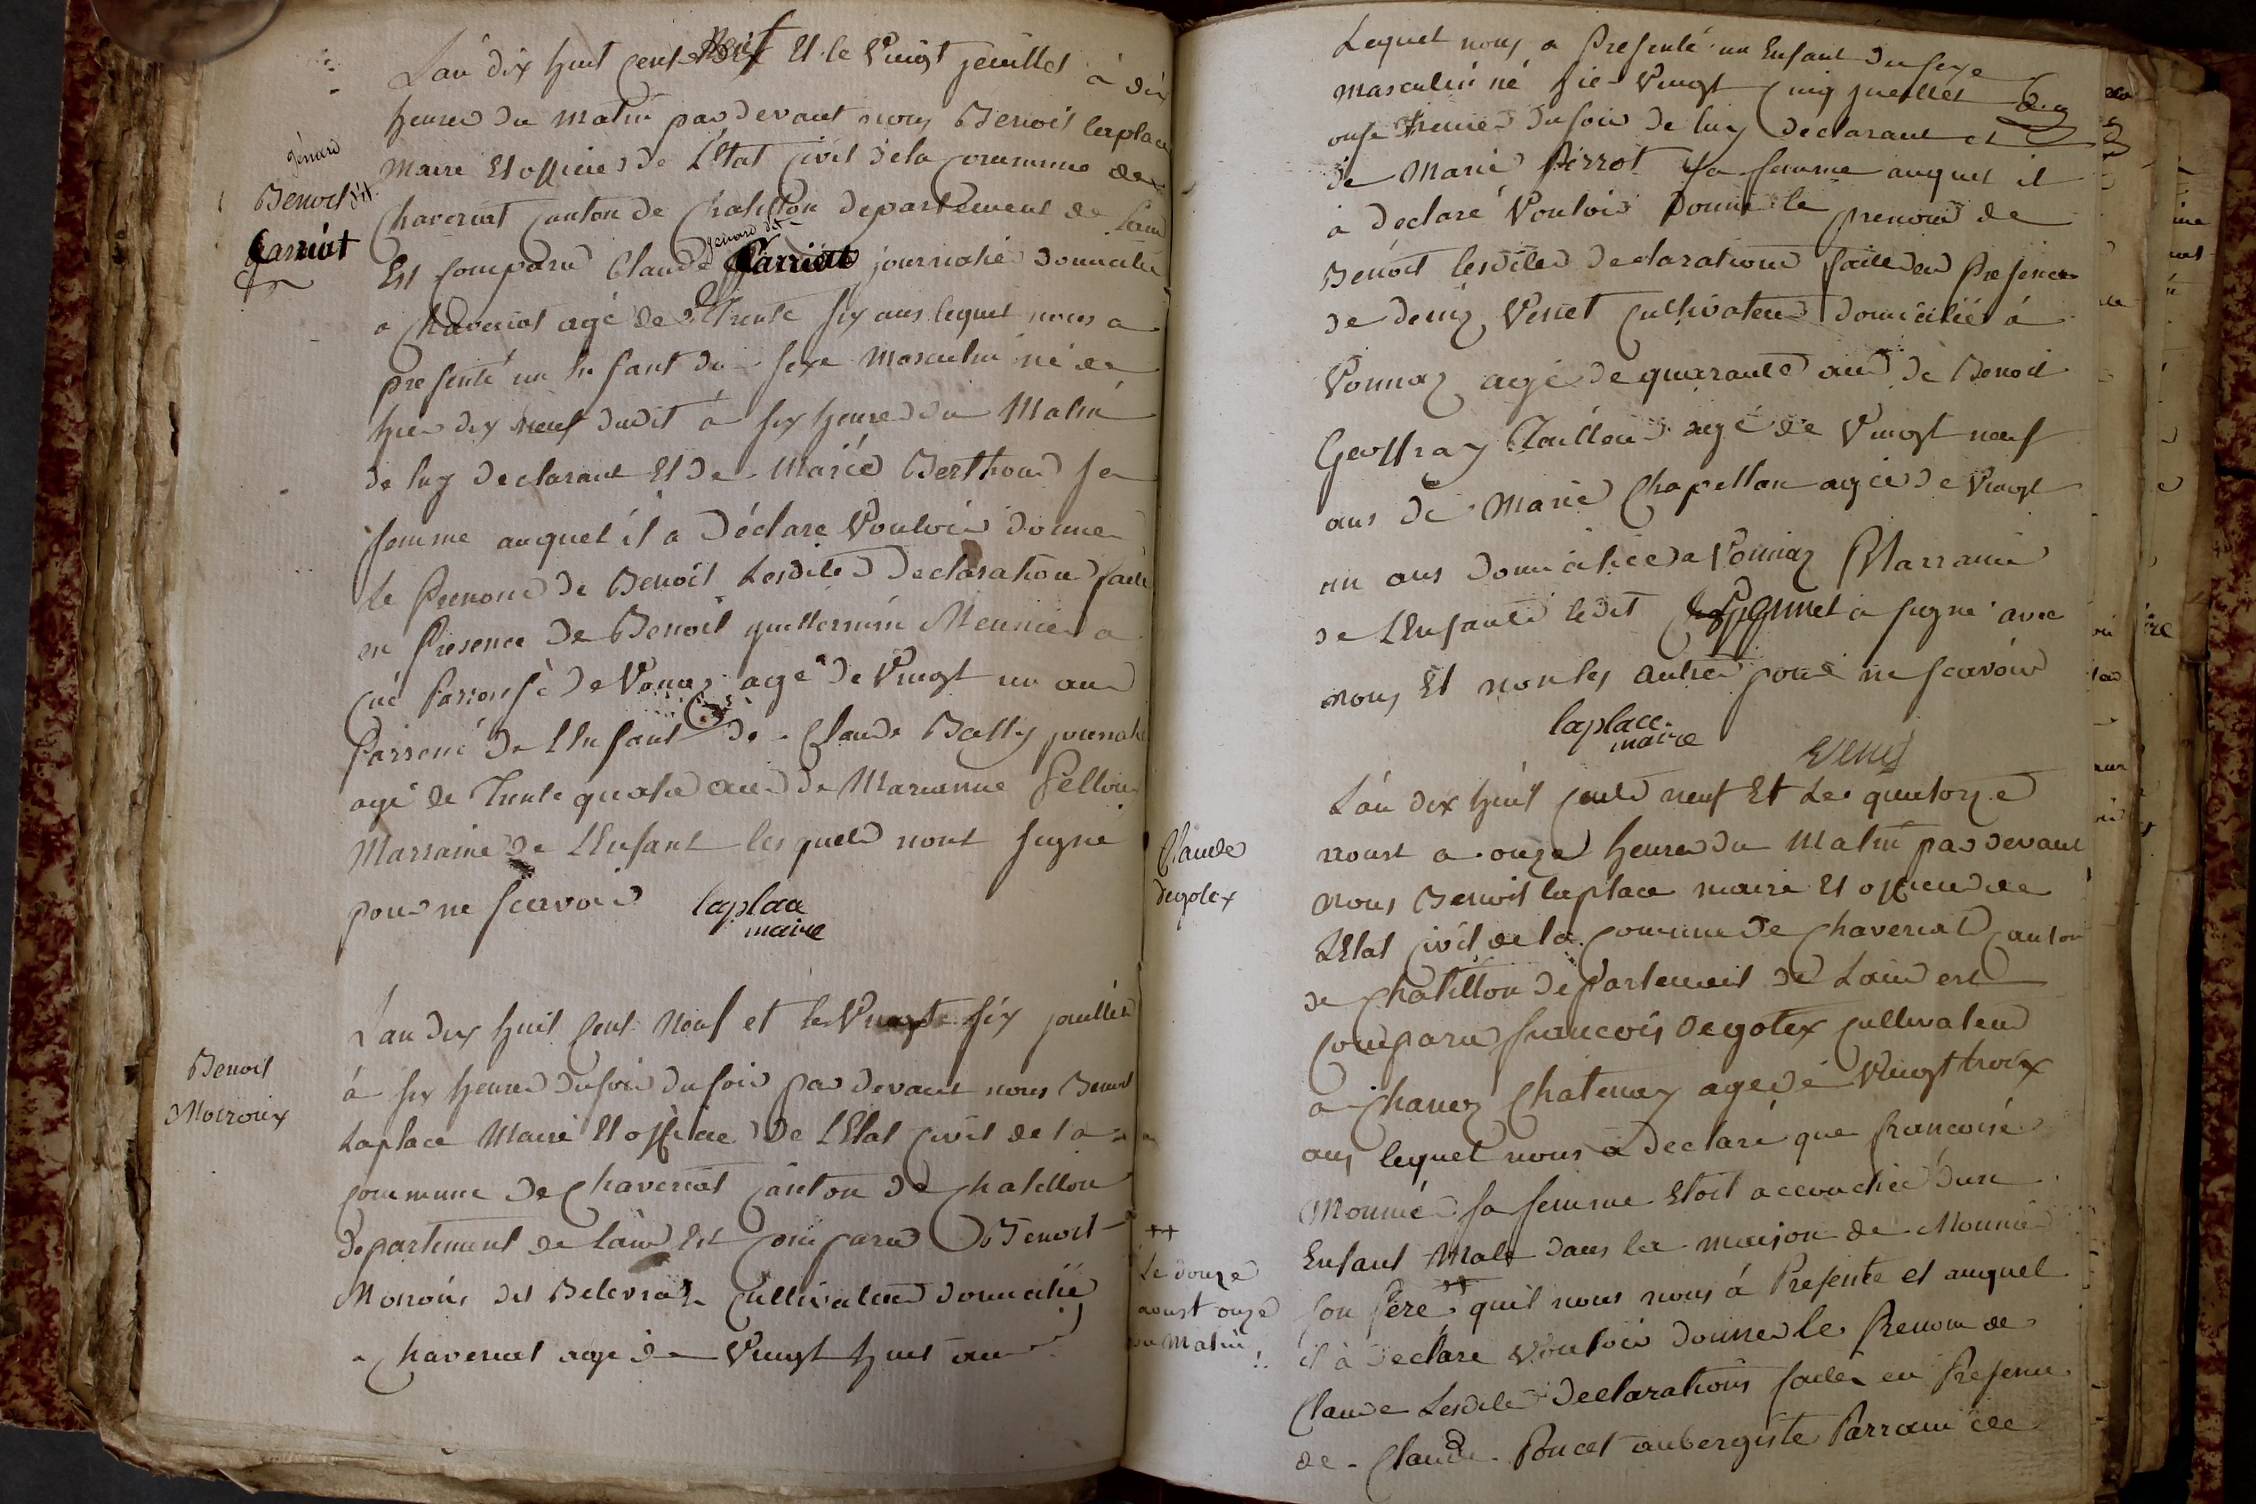 L'an dix huit cent neuf Et le Vingt jeuillet à dix
heures du matin pardevant nous Benoit laplace
Maire Et officier de L'Etat Civil dela Commune de
Chaveriat Canton de Chatillon departement de Lain
genard dit
Est Comparu Claude Garriat journalié domicilié
a Chaveriat agé de Trente six ans lequel nous a
presenté un Enfant du sexe Masculin né de
hier dix neuf dudit à six heures du Matin
de luy declarant Et de Marie Berthoud sa
femme auquel il a Déclaré Vouloir donner
le Prenom de Benoit Lesdites Declaration faite
en Presence de Benoit guillermin Meunier a
de Vonnas agé de Vingt un ans
Parrené de L'Enfant de Claude Batty journalié
agé de Trente quatre ans de Marianne Pellou
Marraine de L'Enfant lesquels nont signé
pour ne scavoir laplace
maire
genard
Benoit dit
Garriat
L'an dix huit Cent Neuf et le Vingt six jeuillet
à six heures du soir du soir pardevant nous Benoit
Laplace Maire Et officier De L'Etat Civil de la
Commune De Chaveriat Canton de Chatillon
Departement de Lain Est Comparu Benoit
Moiroux dit Cultivateur domicilié
a Chaveriat agé de Vingt huit ans
Benoit
Moiroux
Lequel nous a Presenté un Enfant du sexe
masculin né hier Vingt Cinq jueillet
onse heures du soir de luy declarant et
de Marie Perrot sa femme auquel il
a declaré Vouloir donner le prenom de
Benoit lesdites Declarations faites en Presence
de denis Venet Cultivateur domicilié à
Vonnaz agé de quarante ans de Benoit
Geoffray Tailleur agé de Vingt neuf
ans de Marie Chapellan agée de Vingt
un ans domiciliée a Vonnaz Marraine
de L'Enfant ledit Venet a signé avec
nous Et non les autres pour ne scavoir
laplace Venet
maire
L'an dix huit Cent neuf Et Le quatorze
aoust a onze heures du Matin pardevant
nous Benoit laplace maire Et officier de
L'Etat Civil de la Commune De Chaveriat Canton
de Chatillon departement de Lain est
Comparu francois Degolex Cultivateur
a Chanoz Chatenay agé de Vingt troix
ans lequel nous a declaré que francoise
Mounié sa femme Etoit accouchée d'un
Enfant Male dans la maison de Mounié
son Pere ++ quil nous nous à Presenté et auquel
il à declaré Vouloir donner le Prenom de
Claude Lesdites declarations faites en Presence
de Claude Poncet aubergiste Parrain de
Claude
Degolex
++
Le douze
aoust onze
du Matin